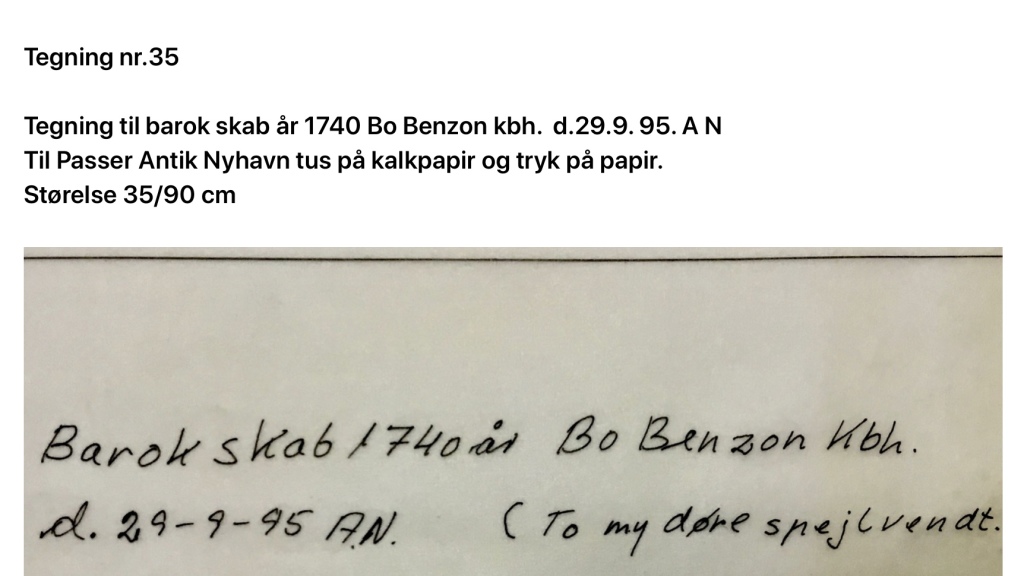 Tegning nr.35
Tegning til barok skab år 1740 Bo Benzon kbh. d.29.9. 95. A N
Til Passer Antik Nyhavn tus på kalkpapir og tryk på papir.
Størelse 35/90 cm
Barok skab 1740 år Bo Benzon Kbh.
d. 29-9-95 A.N. ( To my døre spejlvendt.